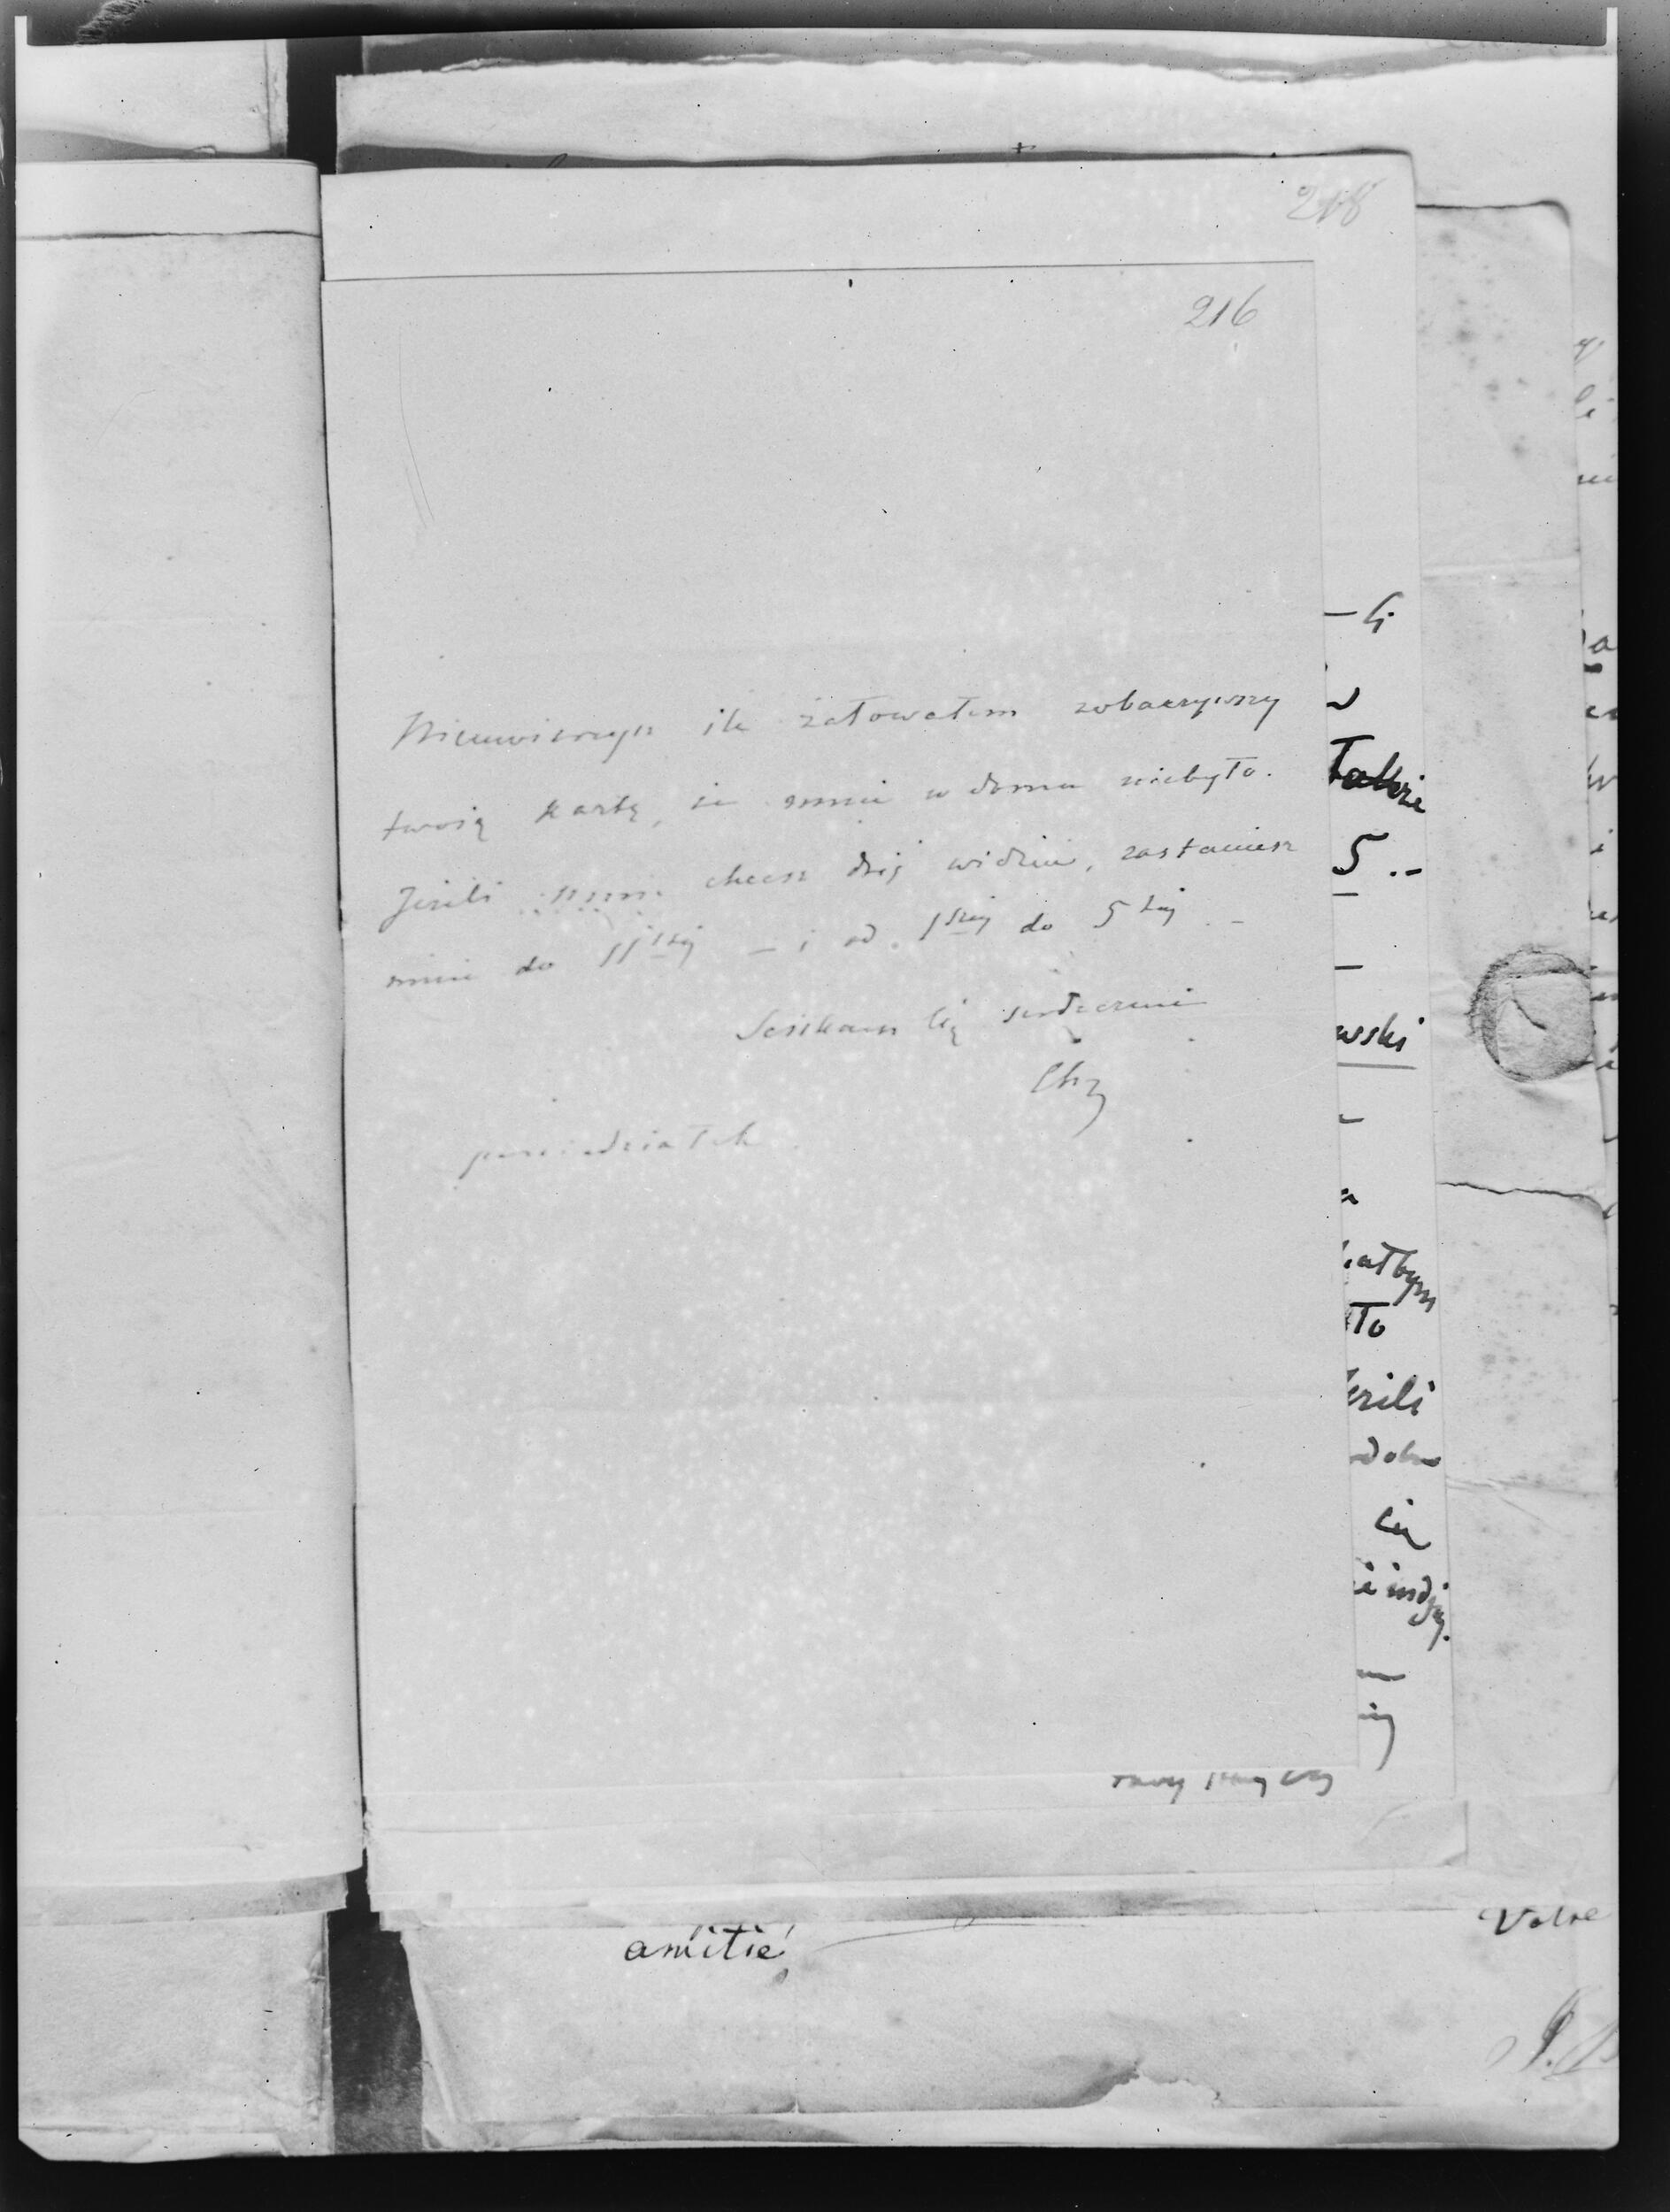 218
216
Nieuwierzysz ile żałowałem zobaczywszy
twoię kartę, że mnie w domu niebyło.
Jeżeli mnie chcesz dziś widzieć, zastaniesz
mnie do 11stej – i od 1szej do 5tej –
Sciskam Cię serdecznie
Chz
poniedziałek
– 4
5 ..
wski
iałbym
To
erili
Cię
amitié,
Votre